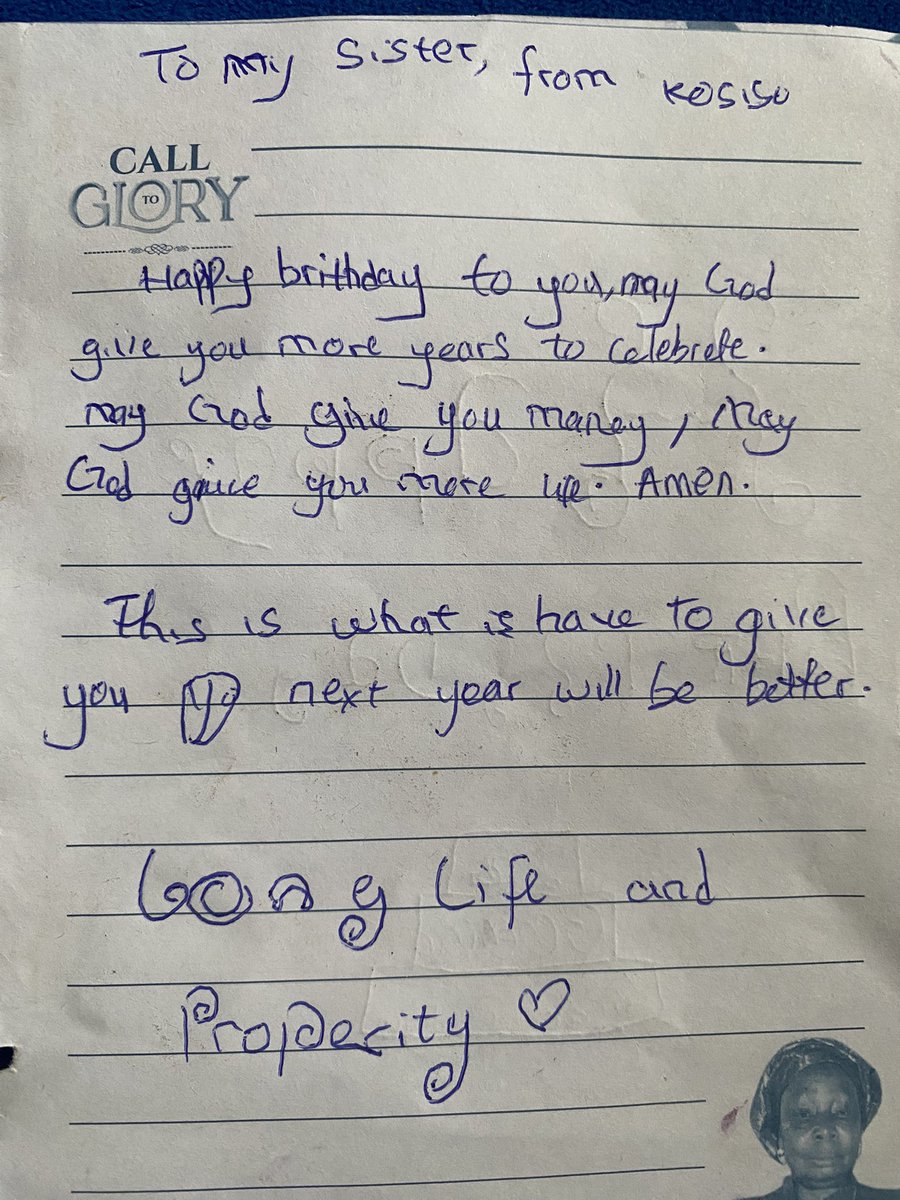 To my Sister, from Kosiso
CALL
TO
GLORY
Happy brithday to you, may God
give you more years to celebrete.
may God give you maney, May
God gaive you more life. Amen.
This is what is have to give
you next year will be better.
Long Life and
Properity